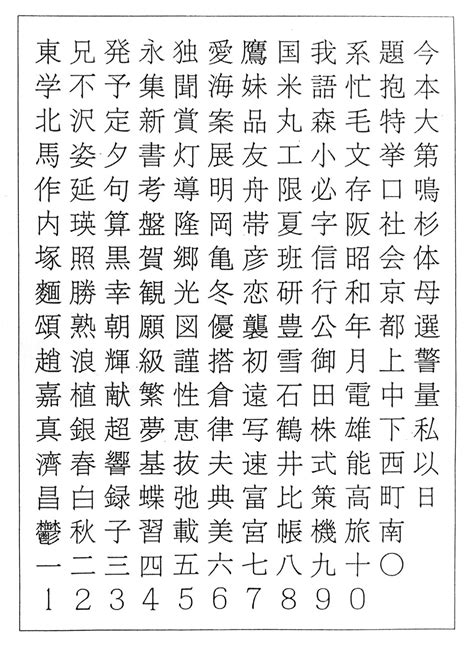 今本大第鳴杉体母選警量私以日
題抱特挙口社会京都上中下西町南〇
系忙毛文存阪昭和年月電雄能高旅十0
我語森小必字信行公御田株式策機九9
国米丸工限夏班研豊雪石鶴井比帳八8
鷹妹品友舟帯彦恋襲初遠写速富宮七7
愛海案展明岡亀冬優搭倉律夫典美六6
独聞賞灯導隆郷光図謹性恵抜弛載五5
永集新書考盤賀観願級繁夢基蝶習四4
発予定夕句算黒幸朝輝献超響録子三3
兄不沢姿延瑛照勝熟浪植銀春白秋二2
東学北馬作内塚麵頌趙嘉真濟昌鬱一1